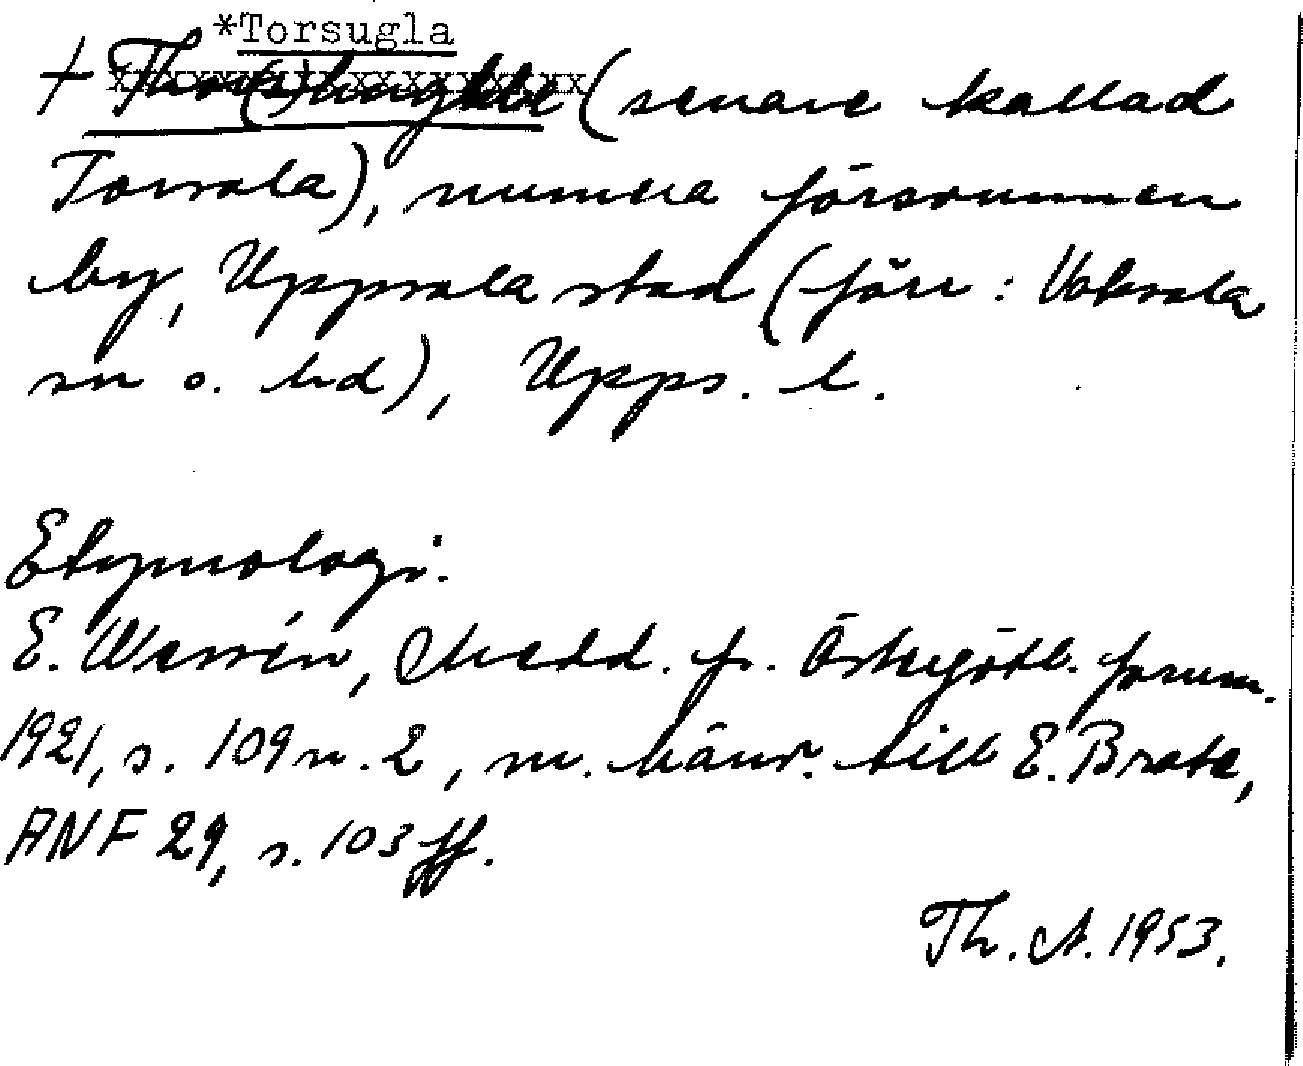 *Torsugla
+ (senare kallad
Torsala), numera försvunnen
by, Uppsala stad (förr: Vaksala
sn o. hd), Upps. l.
Etymologi.
E. Wessén, Medd. fr. Östergötl. fornm.
1921, s. 109 n. 2, m. hänv. till E. Brate,
ANF 29, s. 103 ff.
Th. A. 1953.